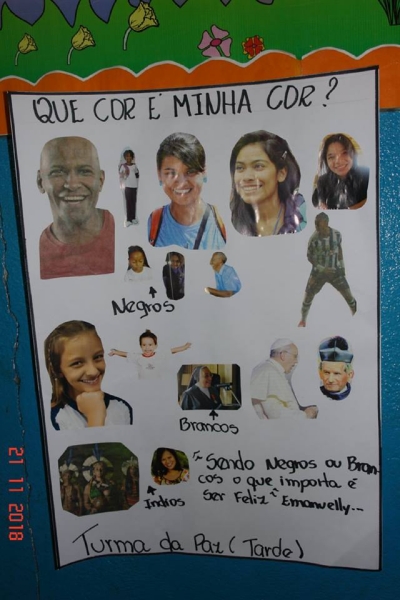 QUE COR E MINHA COR?
Negros
Brancos
"Sendo Negros ou Bran-
cos o que importa é
Ser Feliz" Emanuelly...
Indios
Turma da Paz (Tarde)
21 11 2018